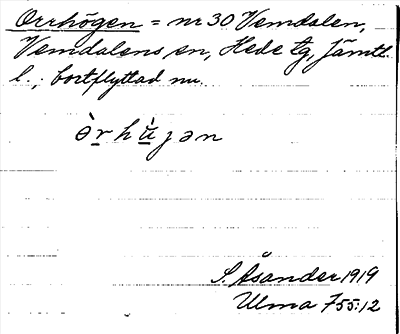 Orrhögen = nr 30 Vemdalen,
Vemdalens sn, Hede tg, Jämtl.
l.; bortflyttad nu.
ə̀r h ʉ̀ ȷ ə n
S. Åsander 1919
Ulma 755:12